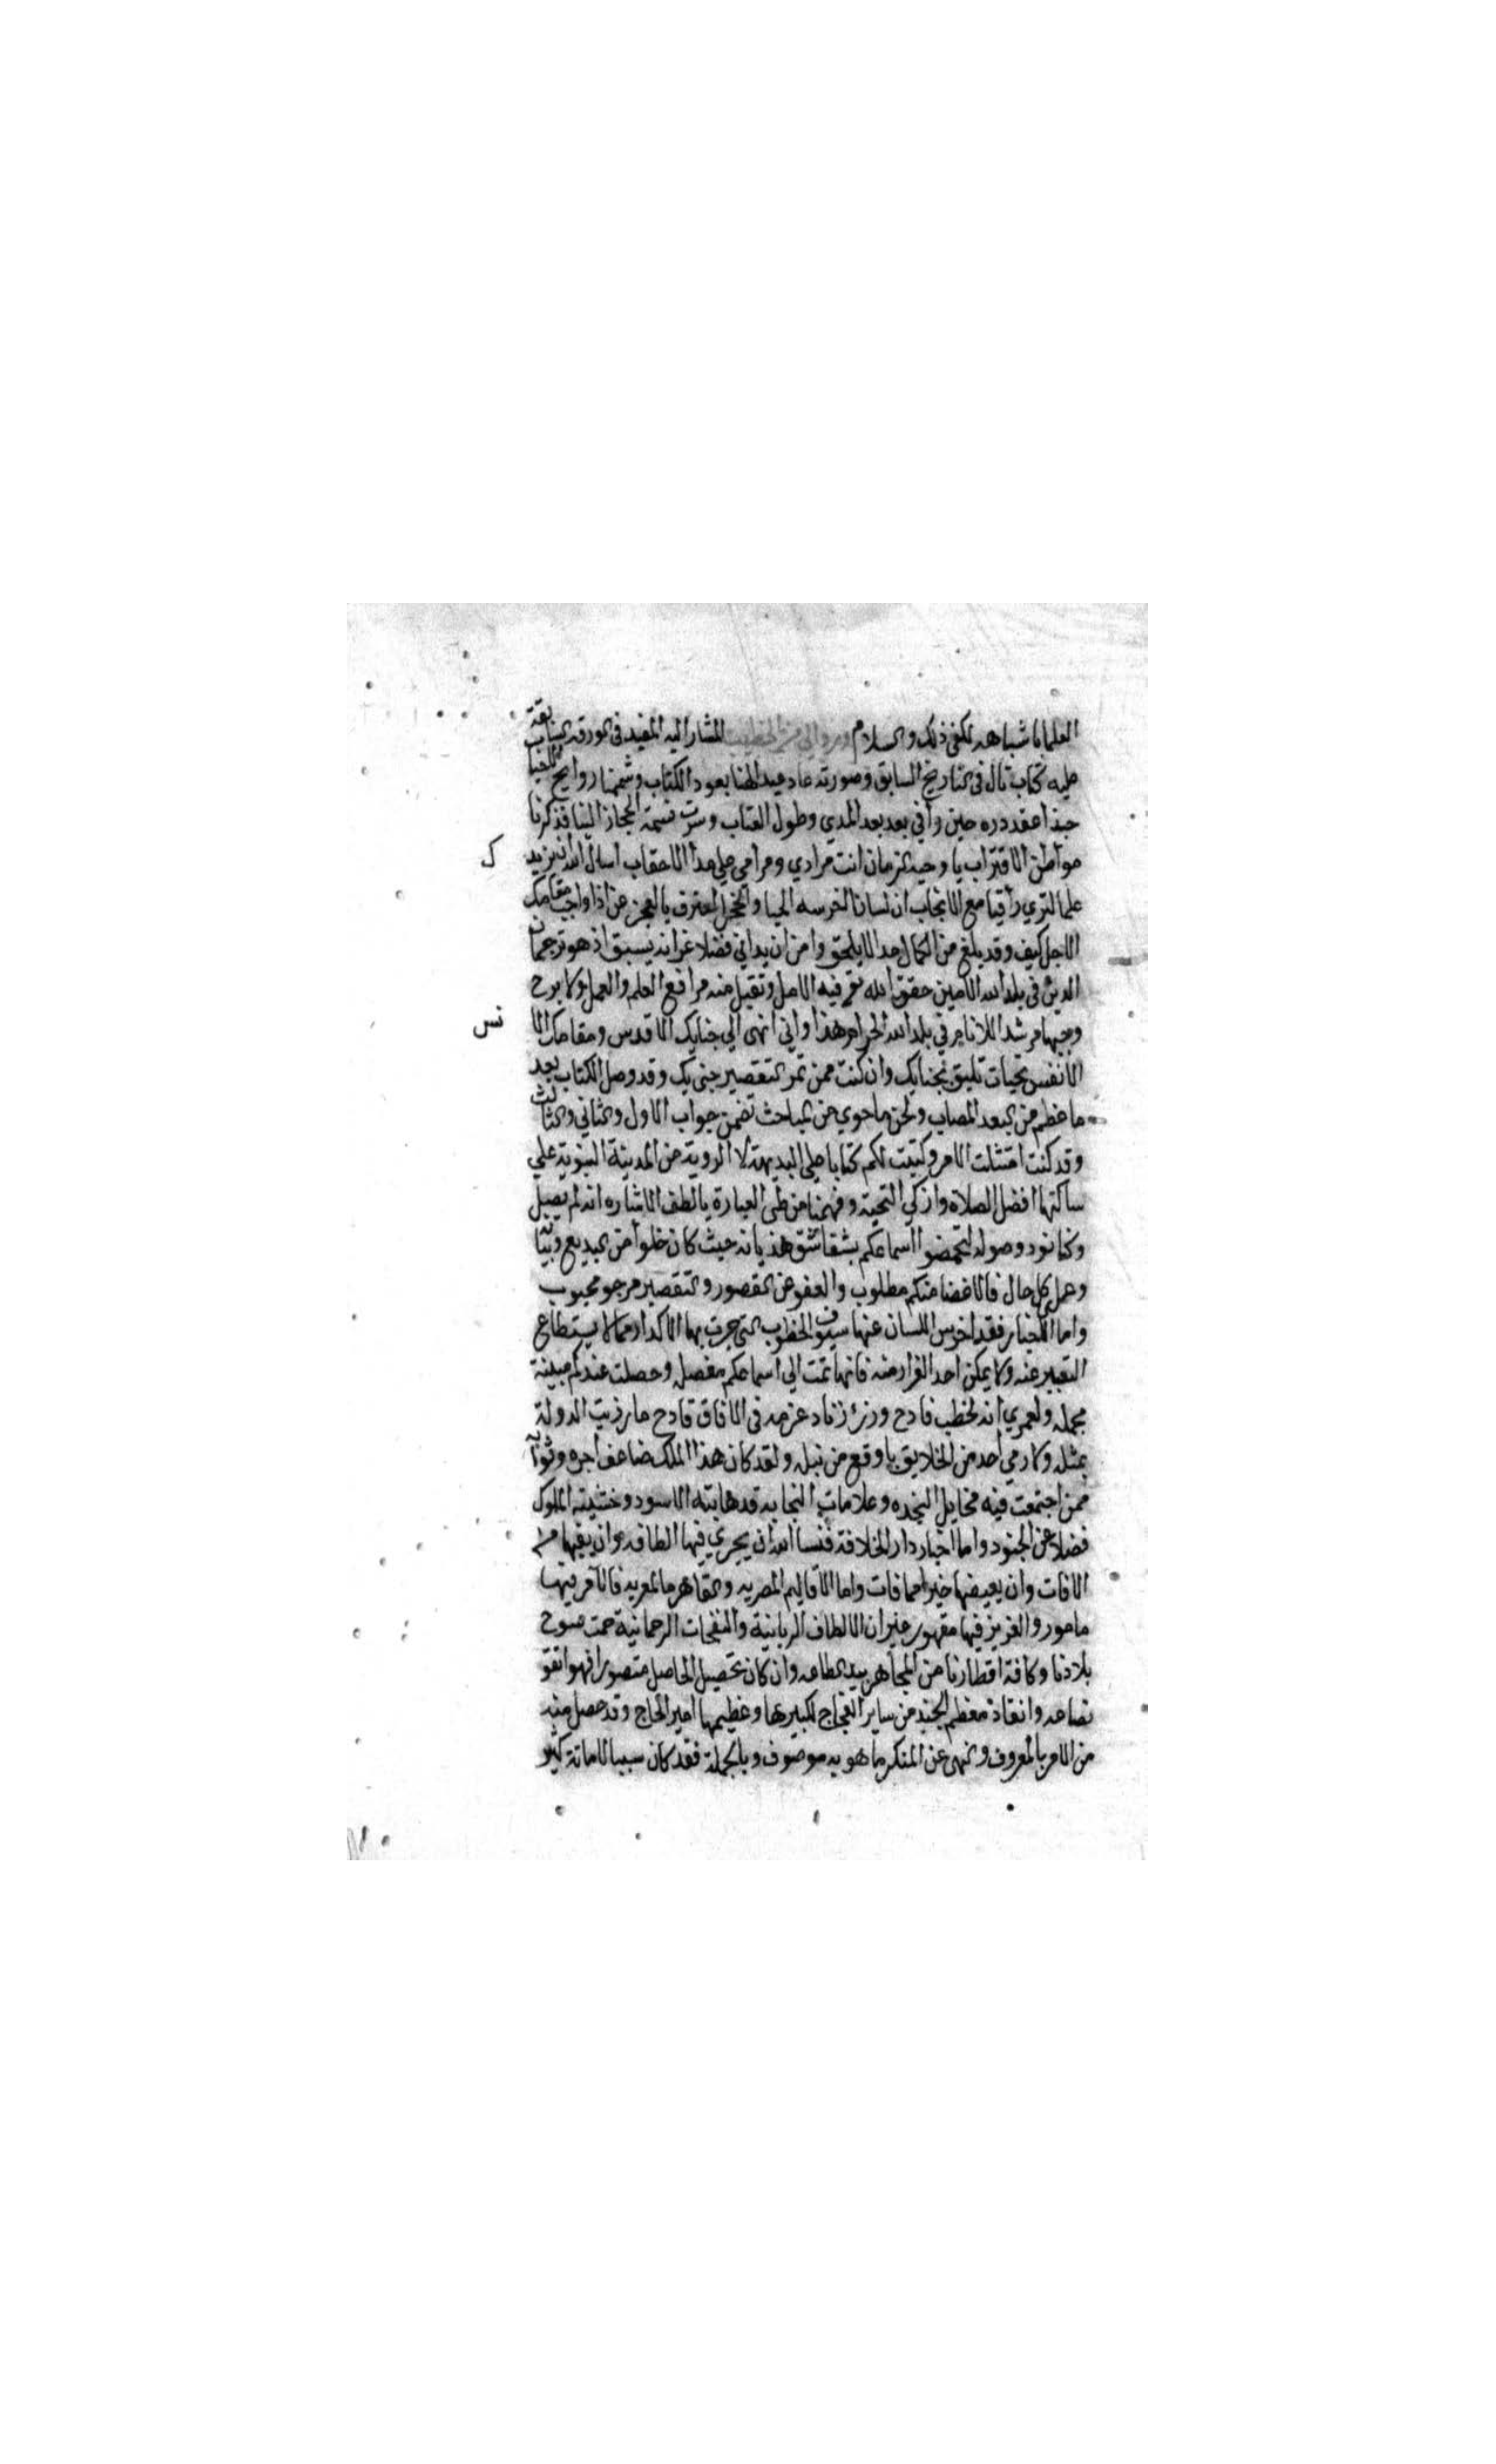 العلما باشباهه لكفى ذلك والسلام وورد الي من الخطيب المشار اليه المفيد في الورقه السابقة
عليه كتاب تال في التاريخ السابق وصورته عاد عيد الهنا بعود الكتاب وشممنا روايح
حبذا عقد دره حين وافي بعد بعد المدي وطول العتاب وسرت نسمة الحجاز الينا فذكرنا
مواطن الاقتراب يا وحيد الزمان انت مرادي ومرامي علي مدا الاحقاب اسال الله ان يزيد
علما لتري راقيا مع الانجاب ان لسانا اخرسه الحيا والخجل لمعترف بالعجز عن اذا واجب مقامك
الاجل كيف وقد بلغ من الكمال حدا لا يلحق وامن ان يداني فضلا عن انه يسبق اذ هو ترجمان
الدين في بلد الله الامين حقق الله تع فيه الامل وتقبل منه مرافع العلم والعمل ولا برح
وجيها مرشدا للانام في بلد الله الحرام هذا واني انهى الي جنابك الاقدس ومقامك الا
الانفس تحيات تليق بجنابك وان كنت ممن ثمر التقصير جني بك وقد وصل الكتاب بعد
ما عظم من البعد المصاب ولحن ما حوي من المباحث تضمن جواب الاول والثاني والثالث
وقد كنت امتثلت الامر وكتبت لكم كتابا علي البديهة لا الروية من المدينة النبوية علي
ساكنها افضل الصلاة وازكي التحية وفهمنا من طي العبارة بالطف الاشاره انه لم يصل
وكنا نود وصوله لتحمضوا اسماعكم بشقاشق هذيانه حيث كان خلوا من البديع وبيّنا
وعلي كل حال فالاغضا منكم مطلوب والعفو عن القصور والتقصير مرجو محبوب
واما الاخبار فقد اخرس اللسان عنها سيوف الخطوب التي جرت بها الاكدار مما لا يستطاع
التعبير عنه ولا يمكن احد الفرار منه فانها تمت الي اسماعكم مفصله وحصلت عندكم مبينة
مجمله ولعمري انه لخطب فادح ورزء زناد عزمه في الافاق قادح ما رزيت الدولة
بمثله ولا رمي احد من الخلايق باوقع من نبله ولقد كان هذا الملك ضاعف اجره وثوابه
ممن اجتمعت فيه مخايل النجده وعلامات النجابه قد هابته الاسود وخشيته الملوك
فضلا عن الجنود واما اخبار دار الخلافة فنسا الله ان يجري فيها الطافه وان يقيها من
الافات وان يعيضها خيرا مما فات واما الاقاليم المصريه والقاهره المعزيه فالآمر فيها
مامور والعزيز فيها مقهور غير ان الالطاف الربانية والنفحات الرحمانية حمت سوح
بلادنا وكافة اقطارنا من المجاهر بيد الطاعه وان كان تحصيل الحاصل متصورا فهو اتقو
نصاعه وانقاذ معظم الجند من ساير الفجاج لكبيرها وعظيمها امير الحاج وقد حصل منه
من الامر بالمعروف والنهي عن المنكر ما هو به موصوف وبالجملة فقد كان سببا لاماتة كثير